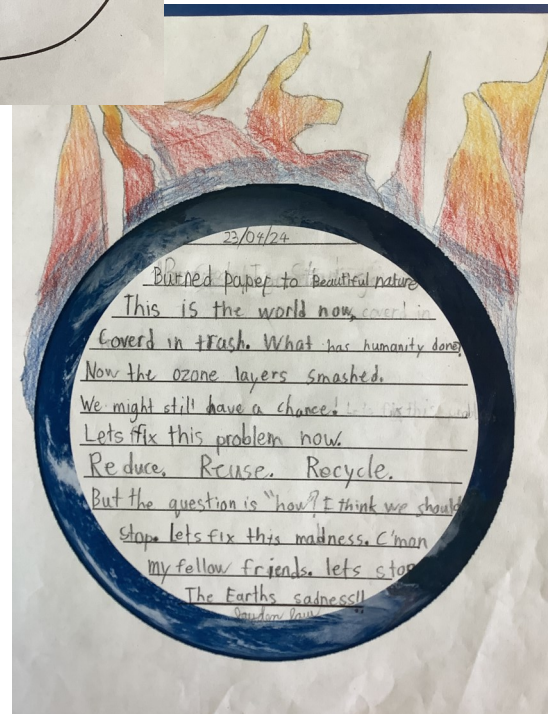 23/04/24
Burned paper to Beautiful nature
This is the world now,
Coverd in trash. What has humanity done?
Now the ozone layers smashed.
We might still have a chance!
Lets fix this problem now.
Reduce. Reuse. Recycle.
But the question is "how"? I think we should
stop. lets fix this madness. C'mon
my fellow friends. lets stop
The Earths sadness!!